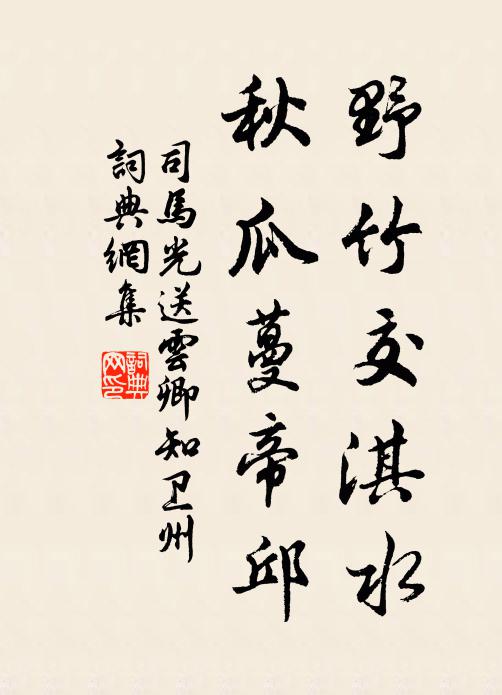 野竹交淇水
秋瓜蔓帝邱
司馬光送雲卿知卫州
詞典網集
詞典网印